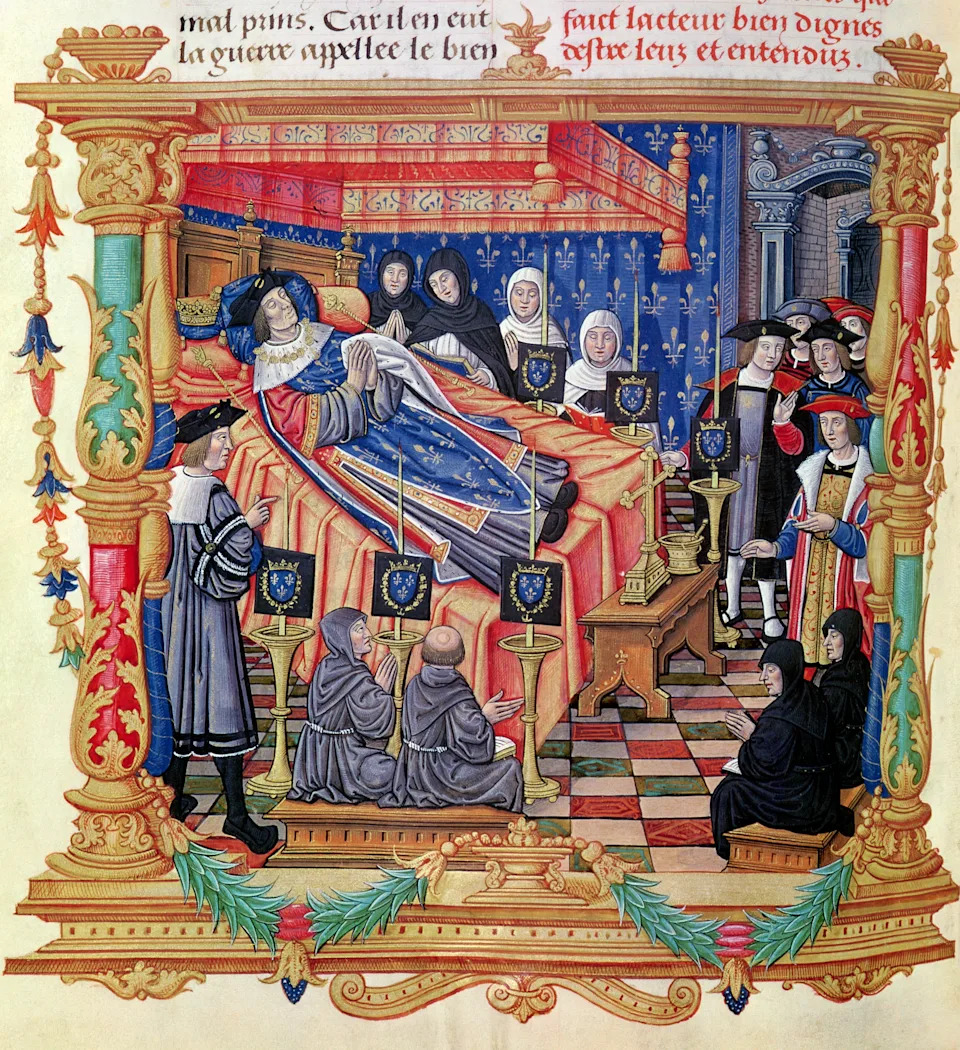 mal prins. Car il en eut
la guerre appellee le bien
faict lacteur bien dignes
destre leuz et entenduz.